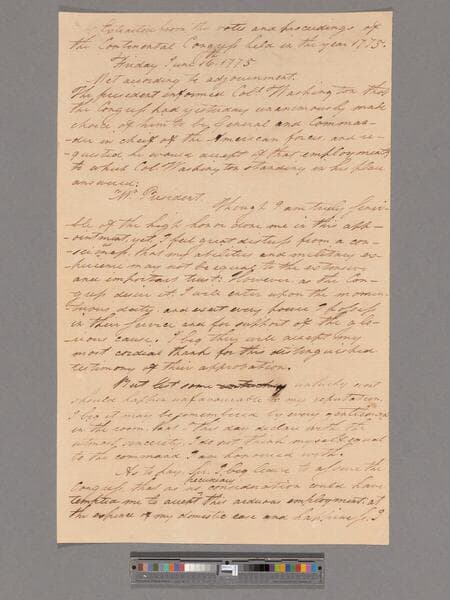 Extracted from the votes and proceedings of
the Continental Congress held in the year 1775.
Friday June 16th 1775
Met according to adjournment.
The president informed Col. Washington that
the Congress had yesterday unanimously made
choice of him to be General and Comman-
-der in cheif of the American forces, and re-
-quested he would accept of that employment,
to which Col. Washington standing in his place
answered:
"Mr. President.
Though I am truly sensi-
-ble of the high honor done me in this app-
-ointment, yet, I feel great distress from a con-
-sciousness, that my abilities and military ex-
-perience may not be equal to the extensive
and important trust: However, as the Con-
-gress desire it, I will enter upon the momen-
-tous duty, and exert every power I possess
in their service and for support of the glo-
-rious cause. I beg they will accept my
most cordial thanks for this distinguished
testimony of their approbation.
But lest some unlucky event
should happen unfavourable to my reputation,
I beg it may be remembered by every gentleman
in the room, that I this day declare with the
utmost sincerity, I do not think myself equal
to the command I am honoured with.
As to pay, Sir, I beg leave to assure the
Congress, that as no pecuniary consideration could have
tempted me to accept this arduous employment, at
the expence of my domestic ease and happiness, I